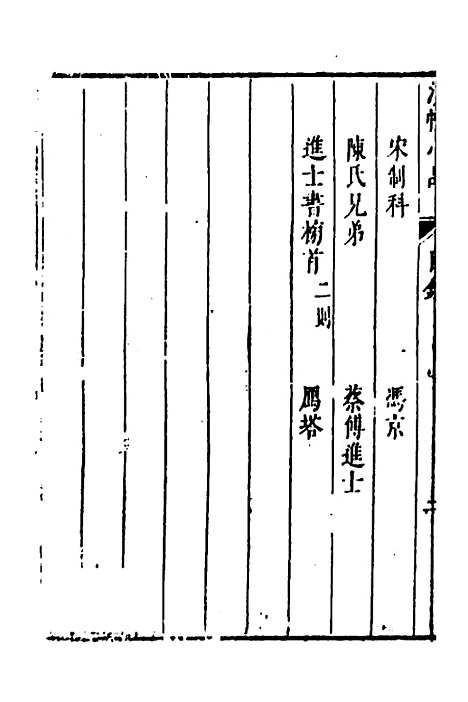 宋制科 馮京
陳氏兄弟 蔡傅進士
進士書榜首 二則 鴈塔